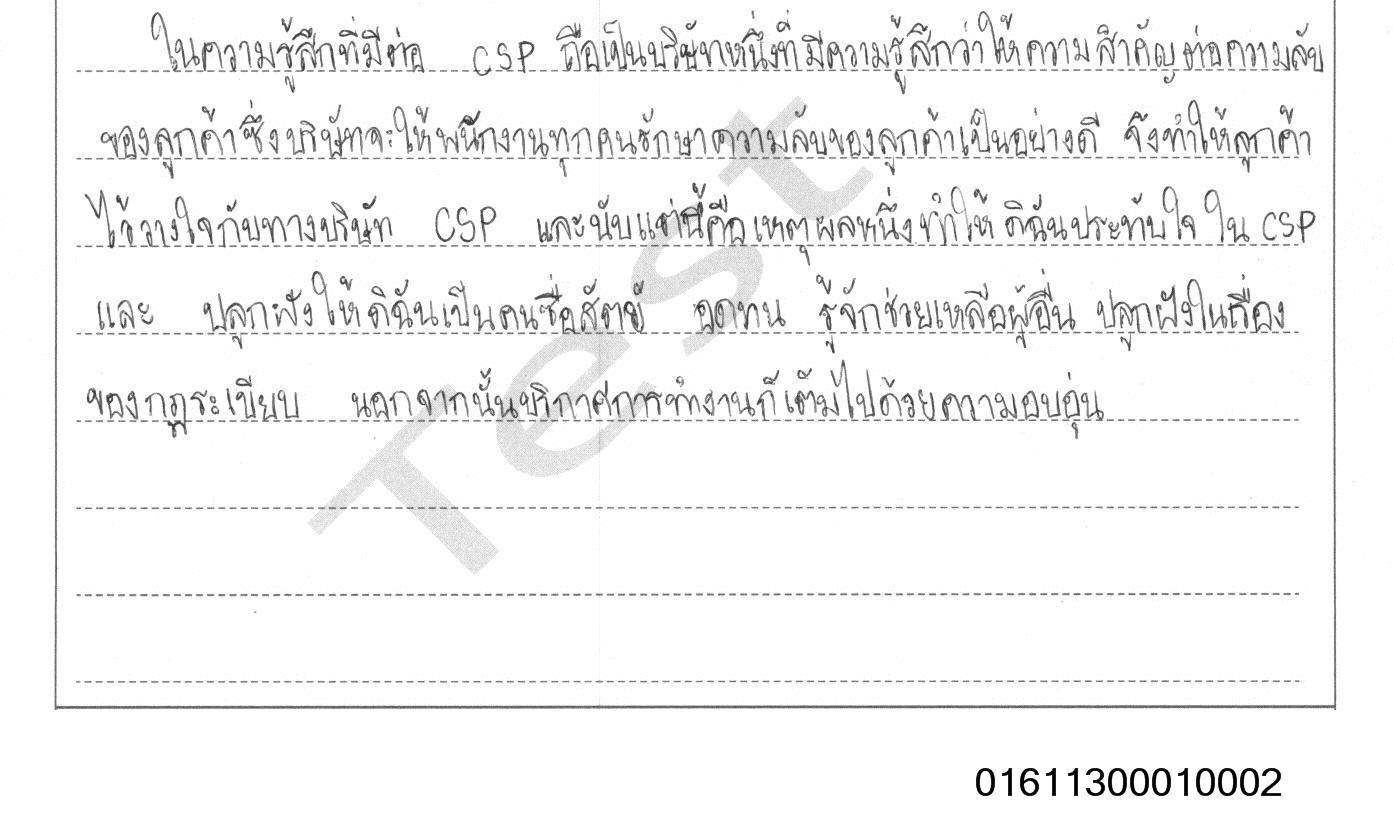 ในความรู้สึกที่มีต่อ CSP ถือเป็นบริษัทหนึ่งที่มีความรู้สึกว่าให้ความสำคัญต่อความลับ
ของลูกค้าซึ่งบริษัทจะให้พนักงานทุกคนรักษาความลับของลูกค้าเป็นอย่างดี จึงทำให้ลูกค้า
ไว้วางใจกับทางบริษัท CSP และนับแต่นี้คือเหตุผลหนึ่งทำให้ดิฉันประทับใจใน CSP
และ ปลูกฝังให้ดิฉันเป็นคนซื่อสัตย์ อดทน รู้จักช่วยเหลือผู้อื่น ปลูกฝังในเรื่อง
ของกฎระเบียบ นอกจากนั้นบริกาศการทำงานก็เต็มไปด้วยความอบอุ่น
Test
01611300010002